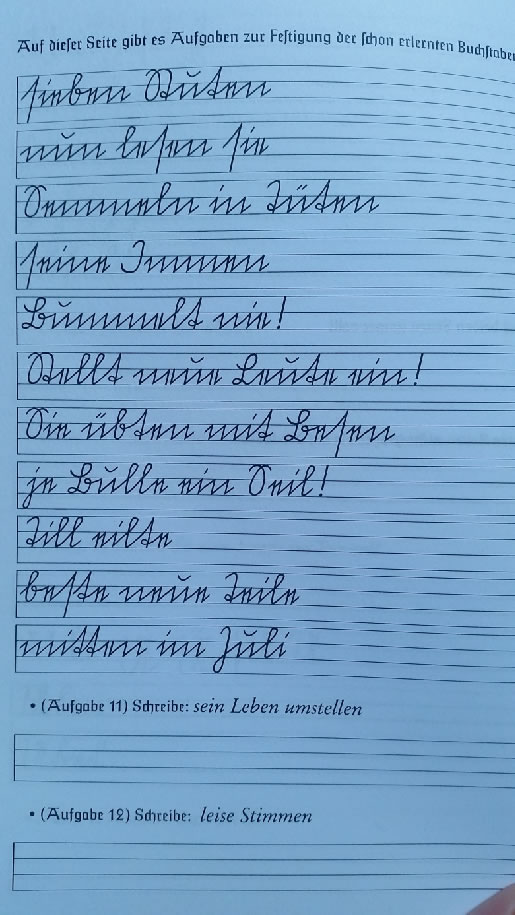 Auf dieſer Seite gibt es Aufgaben zur Feſtigung der ſchon erlernten Buchſtaben
ſieben Stuten
nun leſen ſie
Semmeln in Tüten
ſeine Immen
Bummelt nie!
Stellt neue Leute ein!
Sie übten mit Beſen
je Bulle ein Seil!
Till eilte
beſte neue Teile
mitten im Juli
• (Aufgabe 11) Schreibe: sein Leben umstellen
• (Aufgabe 12) Schreibe: leise Stimmen